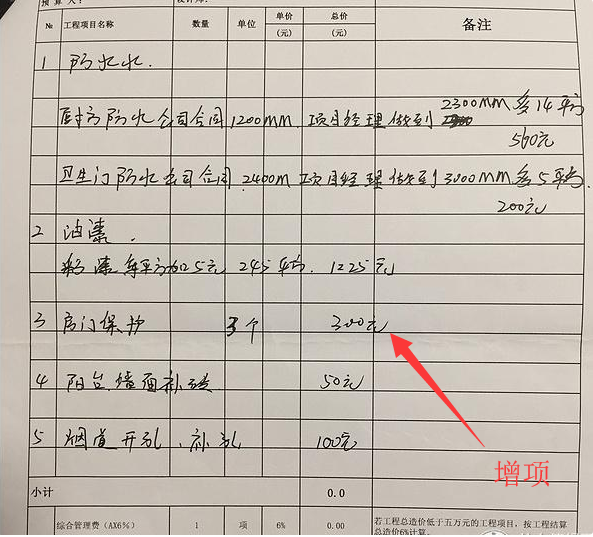 预 算 人：
№ 工程项目名称 数量 单位 单价(元) 总价(元) 备注
1 防水水.
厨房防水公司合同1200MM.项目经理做到 2300MM多14平方
560元
卫生门防水公司合同.2400m项目经理做到3000MM多5平方.
200元
2 油漆.
彩漆每平方加25元 245平方. 1225元
3 房门保护 个 300元
4 阳台.墙面补 50元
5 烟道开孔.补孔 100元
增项
小计 0.0
综合管理费（AX6%） 1 项 6% 0.00 若工程总造价低于五万元的工程项目，按工程结算
总造价6%计算。